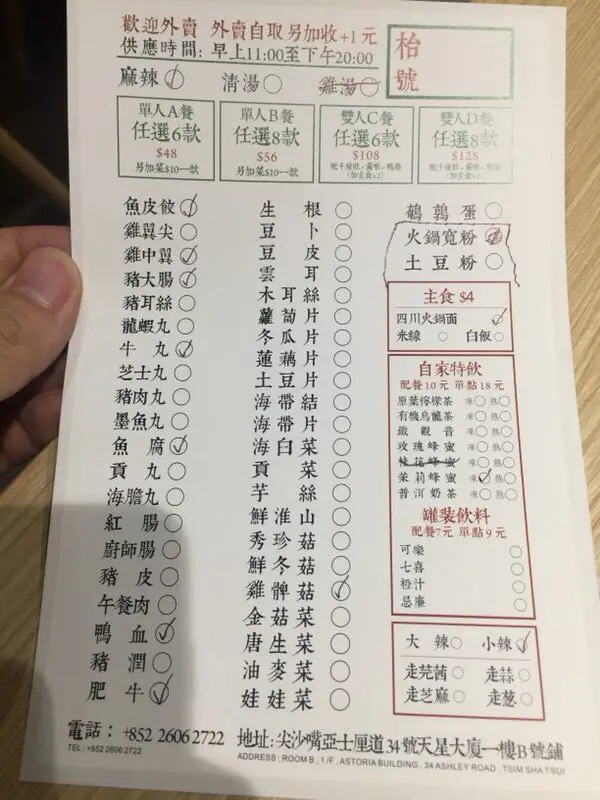 歡迎外賣 外賣自取另加收+1元
供應時間：早上11:00至下午20:00
枱號
麻辣 清湯 雞湯
單人A餐 任選6款 $48 另加菜$10一款
單人B餐 任選8款 $56 另加菜$10一款
雙人C餐 任選6款 $108 (加主食x2)
雙人D餐 任選8款 $128
魚皮餃
雞翼尖
雞中翼
豬大腸
豬耳絲
龍蝦丸
牛丸
芝士丸
豬肉丸
墨魚丸
魚腐
貢丸
海膽丸
紅腸
廚師腸
豬皮
午餐肉
鴨血
豬潤
肥牛
生根
豆卜
豆皮
雲耳
木耳絲
蘿蔔片
冬瓜片
蓮藕片
土豆片
海帶結
海帶片
海白菜
貢菜
芋絲
鮮淮山
秀珍菇
鮮冬菇
雞髀菇
金菇菜
唐生菜
油麥菜
娃娃菜
鵪鶉蛋
火鍋寬粉
土豆粉
主食 $4
四川火鍋面
米線 白飯
自家特飲
配餐10元 單點18元
原葉檸檬茶 凍 熱
有機烏龍茶 凍 熱
鐵觀音 凍 熱
玫瑰蜂蜜 凍 熱
桂花蜂蜜 凍 熱
茉莉蜂蜜 凍 熱
普洱奶茶 凍 熱
罐裝飲料
配餐7元 單點9元
可樂
七喜
橙汁
忌廉
大辣 小辣
走芫茜 走蒜
走芝麻 走葱
電話：+852 2606 2722 地址：尖沙嘴亞士厘道34號天星大廈一樓B號鋪
TEL: +852 2606 2722 ADDRESS: ROOM B, 1/F, ASTORIA BUILDING, 34 ASHLEY ROAD, TSIM SHA TSUI